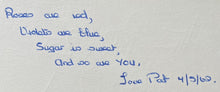 Roses are red,
Violets are blue,
Sugar is sweet,
And so are YOU,
Love Pat 4/9/60.